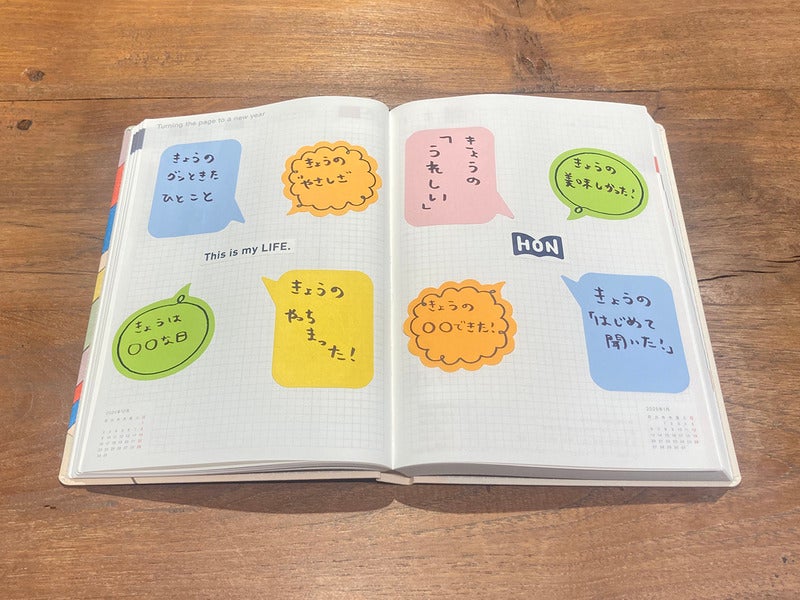 Turning the page to a new year
きょうの
グンときた
ひとこと
きょうの
やさしさ
This is my LIFE.
きょうは
〇〇な日
きょうの
やっち
まった!
きょうの
「うれしい」
きょうの
美味しかった!
HON
きょうの
〇〇できた!
きょうの
「はじめて
聞いた!」